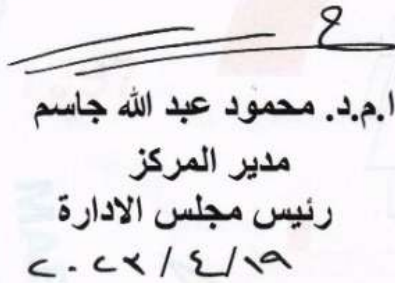 ا.م.د. محمود عبد الله جاسم
مدير المركز
رئيس مجلس الادارة
٢٠٢٣/٤/١٩